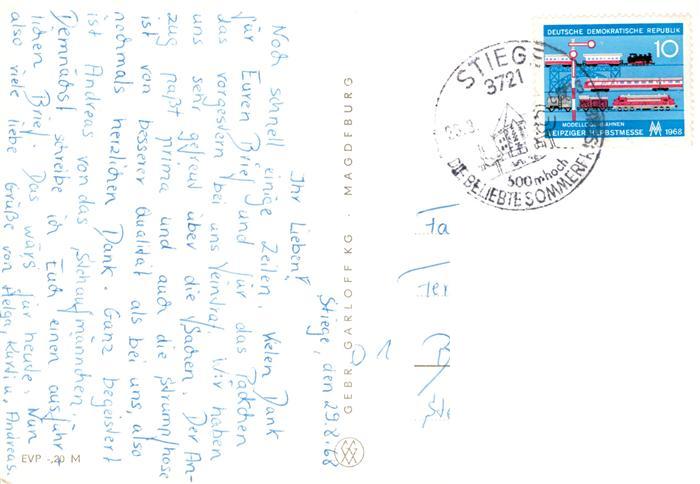 Stiege, den 29.8.68
Ihr Lieben!
Noch schnell einige Zeilen. Vielen Dank
für Euren Brief und für das Päckchen
das vorgestern bei uns eintraf. Wir haben
uns sehr gefreut über die Sachen. Der An-
zug paßt prima und auch die Strumpfhose
ist von besserer Qualität als bei uns, also
nochmals herzlichen Dank. Ganz begeistert
ist Andreas von das Stehaufmännchen.
Demnächst schreibe ich Euch einen ausführ-
lichen Brief. Das wär's für heute. Nun
also viele liebe Grüße von Helga, Kurt u. Andreas.
EVP -,20 M
GEBR. GARLOFF KG · MAGDEBURG
STIEGE
3721
500 m hoch
DIE BELIEBTE SOMMERFRISCHE
DEUTSCHE DEMOKRATISCHE REPUBLIK
10
MODELLEISENBAHNEN
LEIPZIGER HERBSTMESSE MM 1968
Fa